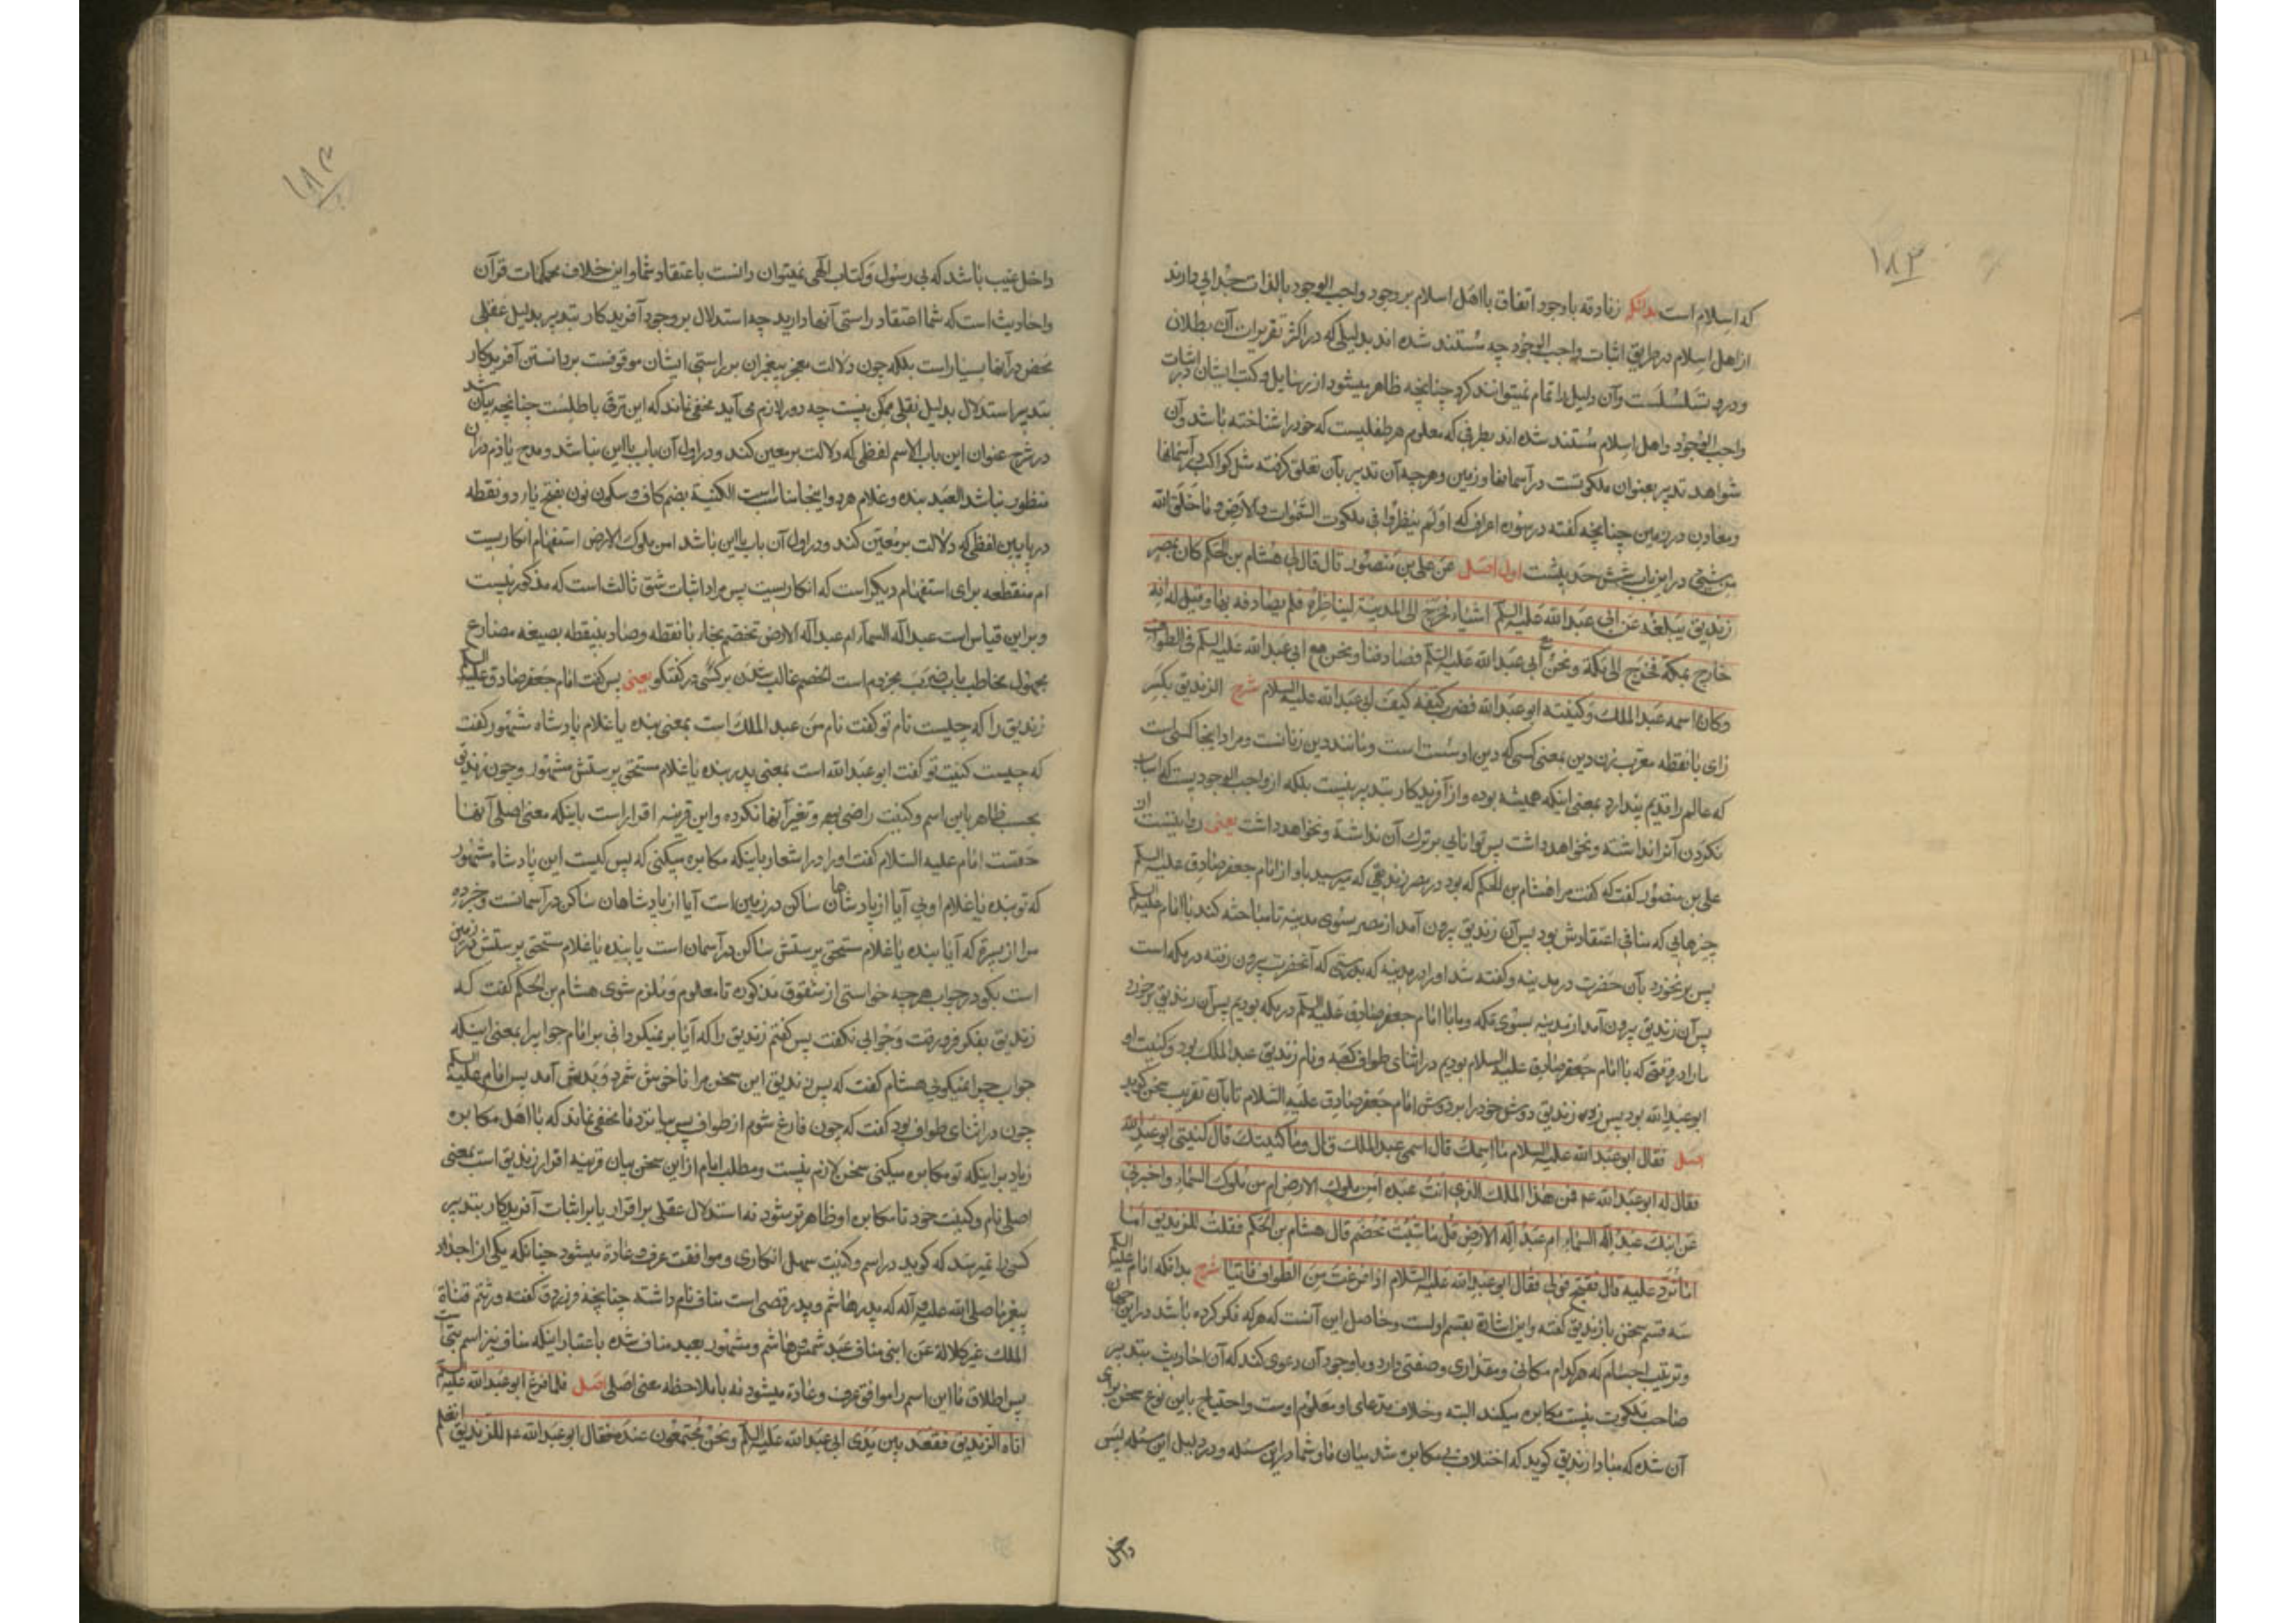 ۱۸۳
که اسلام است بدانکه زنادقه باوجود اتفاق با اهل اسلام بر وجود واجب الوجود بالذات جدایی دارند
از اهل اسلام در طریق اثبات واجب الوجود چه مستند شده اند بدلیلی که در اکثر تقریرات آن بطلان
دور و تسلسلست و آن دلیل را تمام نمیتوانند کرد چنانچه ظاهر میشود از رسایل و کتب ایشان در اثبات
واجب الوجود و اهل اسلام مستند شده اند بطرقی که معلوم هر طفلیست که خود را شناخته باشد و آن
شواهد تدبیر بعنوان ملکوتست در آسمانها و زمین و هرچه آن تدبیر بآن تعلق گرفته مثل کواکب در آسمانها
و معادن در زمین چنانچه گفته در سوره اعراف که اولم ینظروا فی ملکوت السموات والارض و ما خلق الله
من شیء در این باب شش حدیثست اول اصل عن علی بن منصور قال قال لی هشام بن الحکم کان بمصر
زندیق یبلغه عن ابی عبدالله علیه السلم اشیاء فخرج الی المدینة لیناظره فلم یصادفه بها و قیل له انه
خارج بمکة فخرج الی مکة و نحن مع ابی عبدالله علیه السلم فصادفنا و نحن مع ابی عبدالله علیه السلم فی الطواف
و کان اسمه عبدالملک و کنیته ابوعبدالله فضرب کتفه کتف ابی عبدالله علیه السلام شرح الزندیق بکسر
زای بانقطه معرب زن دین بمعنی کسی که دین او سست است و مانند دین زنانست و مراد اینجا کسی است
که عالم را قدیم پندارد بمعنی اینکه همیشه بوده و از آفریدکار بتدبیر نیست بلکه از واجب الوجودیست که اسباب
نکردن آنرا نداشته و نخواهد داشت پس توانایی بر ترک آن نداشته و نخواهد داشت یعنی روایتست از
علی بن منصور گفت که گفت مرا هشام بن الحکم که بود در مصر زندیقی که میرسید باو از امام جعفر صادق علیه السلم
چیزهایی که منافی اعتقادش بود پس آن زندیق بیرون آمد از مصر بسوی مدینه تا مباحثه کند با امام علیه السلم
پس برنخورد بآن حضرت در مدینه و گفته شد او را در مدینه که بدرستی که آنحضرت بیرون رفته در مکه است
پس آن زندیق بیرون آمد از مدینه بسوی مکه و ما با امام جعفر صادق علیه السلم در مکه بودیم پس آن زندیق برخورد
ما را در وقتی که با امام جعفر صادق علیه السلام بودیم در اثنای طواف کعبه و نام زندیق عبدالملک بود و کنیت او
ابوعبدالله بود پس زد زندیق دوش خود را بر دوش امام جعفر صادق علیه السلام تا بآن تقریب سخن گوید
اصل فقال ابوعبدالله علیه السلام ما اسمک قال اسمی عبدالملک قال و ما کنیتک قال کنیتی ابوعبدالله
فقال له ابوعبدالله عم فمن هذا الملک الذی انت عبده امن ملوک الارض ام من ملوک السماء و اخبرنی
عن ابنک عبد اله السماء ام عبد اله الارض قل ما شئت تخصم قال هشام بن الحکم فقلت للزندیق اما
اما ترد علیه قال فقبح قولی فقال ابوعبدالله علیه السلام اذا فرغت من الطواف فاتنا شرح بدانکه امام علیه السلم
سه قسم سخن با زندیق گفته و این اشارة بقسم اولست و حاصل این آنست که هرکه فکر کرده باشد در این جهان
و ترتیب اجسام که هرکدام مکانی و مقداری و صفتی دارد و باوجود آن دعوی کند که آن بتدبیر
صاحب ملکوت نیست مکابره میکند البته و خلاف مدعای او معلوم اوست و احتیاج باین نوع سخن برای
آن شده که مبادا زندیق گوید که اختلاف بی مکابره شد میان ما و شما در این مسئله و در دلیل این مسئله پس
داخل
۱۸۴
داخل غیب باشد که بی رسول و کتاب الهی نمیتوان دانست باعتقاد شما و این خلاف محکمات قرآن
و احادیث است که شما اعتقاد راستی آنها دارید چه استدلال بر وجود آفریدکار بتدبیر بدلیل عقلی
محض در آنها بسیار است بلکه چون دلالت معجز پیغمبران بر راستی ایشان موقوفست بر دانستن آفریدکار
بتدبیر استدلال بدلیل نقلی ممکن نیست چه دور لازم می آید مخفی نماند که این ترقی باطلست چنانچه بیان شد
در شرح عنوان این باب الاسم لفظی که دلالت بر معین کند و در اول آن باب یا ابن نباشد و مدح یا ذم در آن
منظور نباشد العبد بنده و غلام هر دو اینجا مناسبست الکنیة بضم کاف و سکون نون بفتح یاء دو نقطه
در پایین لفظی که دلالت بر معین کند و در اول آن باب یا ابن باشد امن ملوک الارض استفهام انکاریست
ام منقطعه برای استفهام دیگر است که انکاریست پس مراد اثبات شق ثالث است که مذکور نیست
و بر این قیاس است عبد اله السماء ام عبد اله الارض تخصم بخاء بانقطه و صاد بینقطه بصیغه مضارع
مجهول مخاطب باب ضرب مجزوم است الخصم غالب شدن بر کسی در گفتگو یعنی پس گفت امام جعفر صادق علیه السلم
زندیق را که چیست نام تو گفت نام من عبدالملک است بمعنی بنده یا غلام پادشاه مشهور گفت
که چیست کنیت تو گفت ابوعبدالله است بمعنی پدر بنده یا غلام مستحق پرستش مشهور و چون زندیق
بحسب ظاهر باین اسم و کنیت راضی بوده و تغیر آنها نکرده و این قرینه اقرار است باینکه معنی اصلی آنها
حقست امام علیه السلام گفت او را در اشعار باینکه مکابره میکنی که پس کیست این پادشاه مشهور
که تو بنده یا غلام اویی آیا از پادشاهان ساکن در زمین است آیا از پادشاهان ساکن در آسمانست و خبر ده
مرا از پسرت که آیا بنده یا غلام مستحق پرستش ساکن در آسمان است یا بنده یا غلام مستحق پرستش در زمین
است بگو در جواب هرچه خواستی از شقوق مذکوره تا معلوم و ملزم شوی هشام بن الحکم گفت که
زندیق بفکر فرو رفت و جوابی نگفت پس گفتم زندیق را که آیا برنمیگردانی بر امام جواب را بمعنی اینکه
جواب چرا نمیگویی هشام گفت که پس زندیق این سخن مرا ناخوش شمرد و بدش آمد پس امام علیه السلم
چون در اثنای طواف بود گفت که چون فارغ شوم از طواف پس بیا نزد ما مخفی نماند که با اهل مکابره
زیاد بر اینکه تو مکابره میکنی سخن لازم نیست و مطلب امام از این سخن بیان قرینه اقرار زندیق است بمعنی
اصلی نام و کنیت خود تا مکابره او ظاهرتر شود نه استدلال عقلی بر اقرار یا بر اثبات آفریدکار بتدبیر
کسی را نمیرسد که گوید در اسم و کنیت سهل انکاری و موافقت عرف و عادة میشود چنانکه یکی از اجداد
پیغمبر ما صلی الله علیه و آله که پدر هاشم و پدر قصی است مناف نام داشته چنانچه فرزدق گفته ورثتم قناة
الملک غیر کلالة عن ابنی مناف عبد شمس و هاشم و مشهور بعبد مناف شده باعتبار اینکه مناف نیز اسم بتی است
پس اطلاق ما این اسم را موافق عرف و عادة میشود نه با ملاحظه معنی اصلی اصل فلما فرغ ابوعبدالله علیه السلم
اتاه الزندیق فقعد بین یدی ابی عبدالله علیه السلم و نحن مجتمعون عنده فقال ابوعبدالله عم للزندیق اتعلم